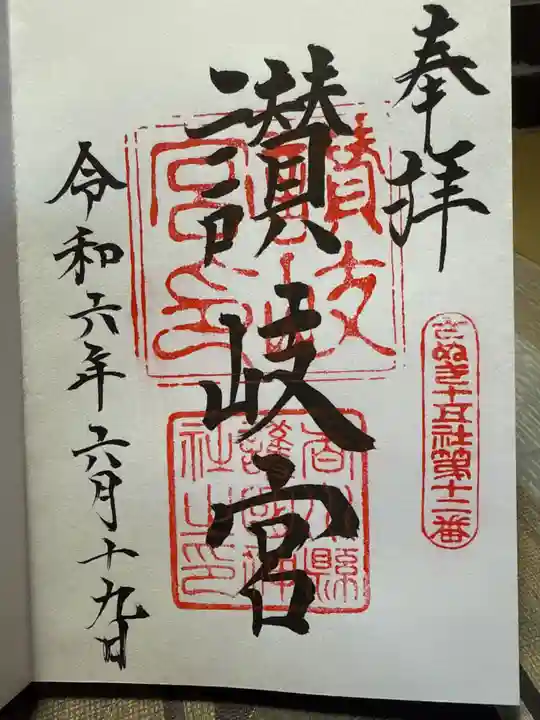 奉拝
さぬき十五社第十二番
讃岐宮
讃岐宮印
香川縣護國神社之印
令和六年六月十九日